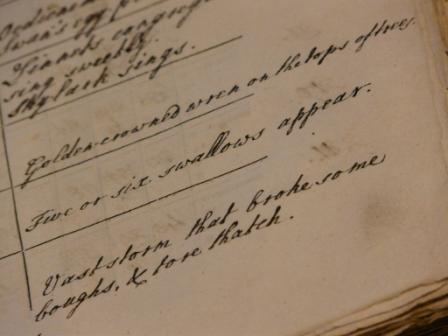 Swan's egg
Linnets congregate
sing sweetly.
Sky lark sings.
Golden-crowned wren on the tops of trees.
Five or six swallows appear.
Vast storm that broke some
boughs, & tore thatch.